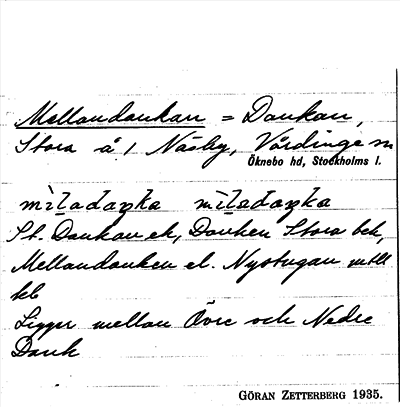 Mellandankan = Dankan,
Stora å 1 Näsby, Vårdinge sn
Öknebo hd, Stockholms l.
St. Dankan ek, Danken Stora bek,
Mellandanken el. Nystugan
Ligger mellan Övre och Nedre
Dank
GÖRAN ZETTERBERG 1935.